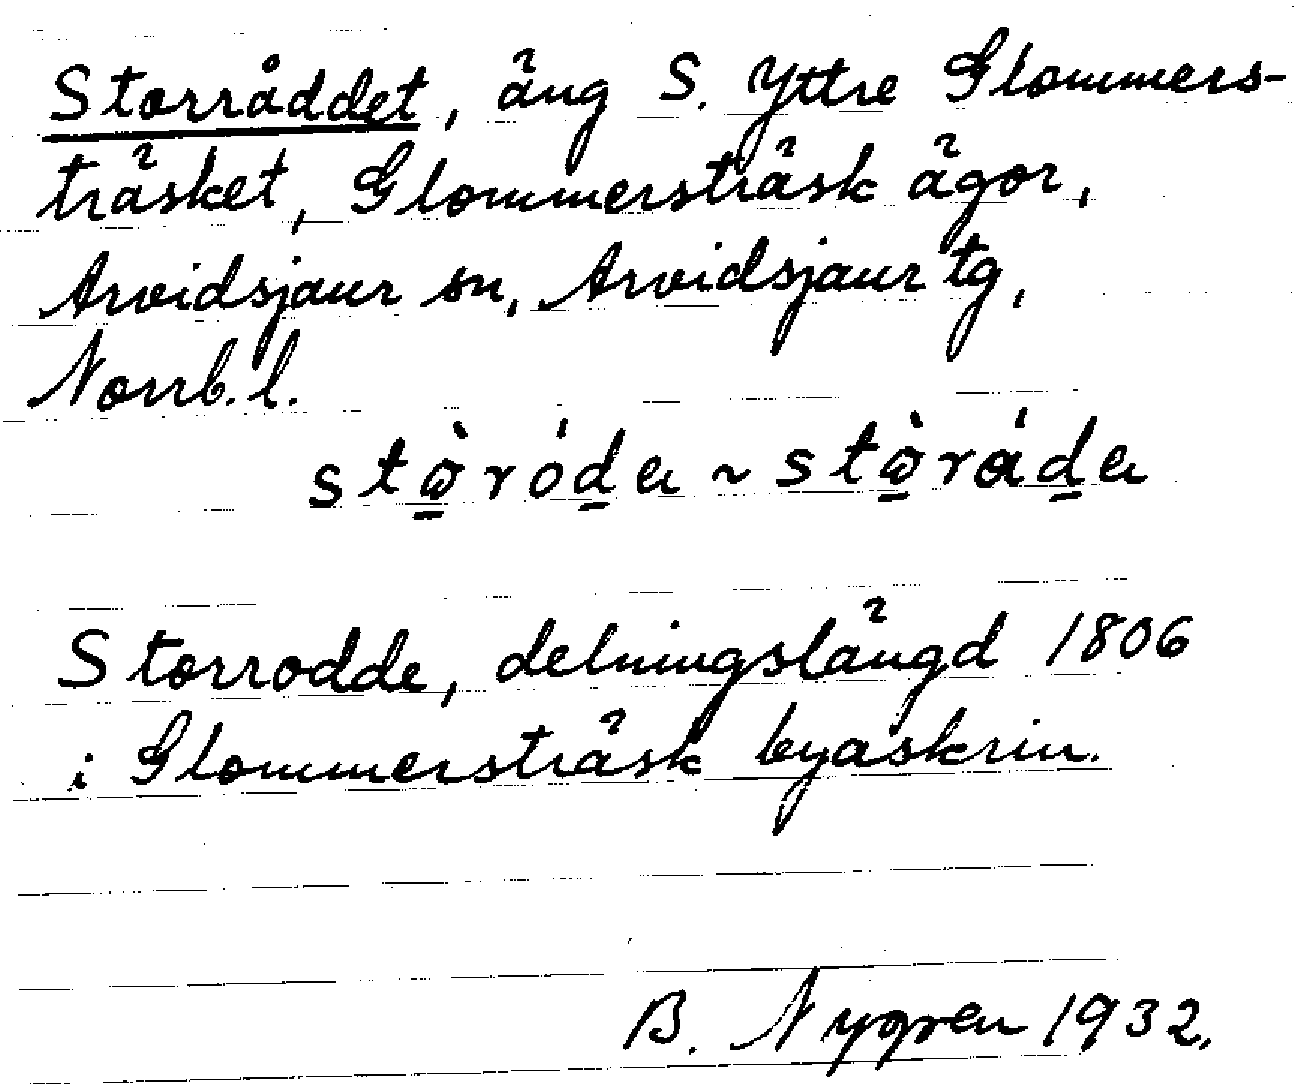 Storråddet, äng S. Yttre Glommers-
träsket, Glommersträsk ägor,
Arvidsjaur sn, Arvidsjaur tg,
Norrb. l.
Storrodde, delningslängd 1806
i Glommersträsk byaskrin.
B. Nygren 1932.